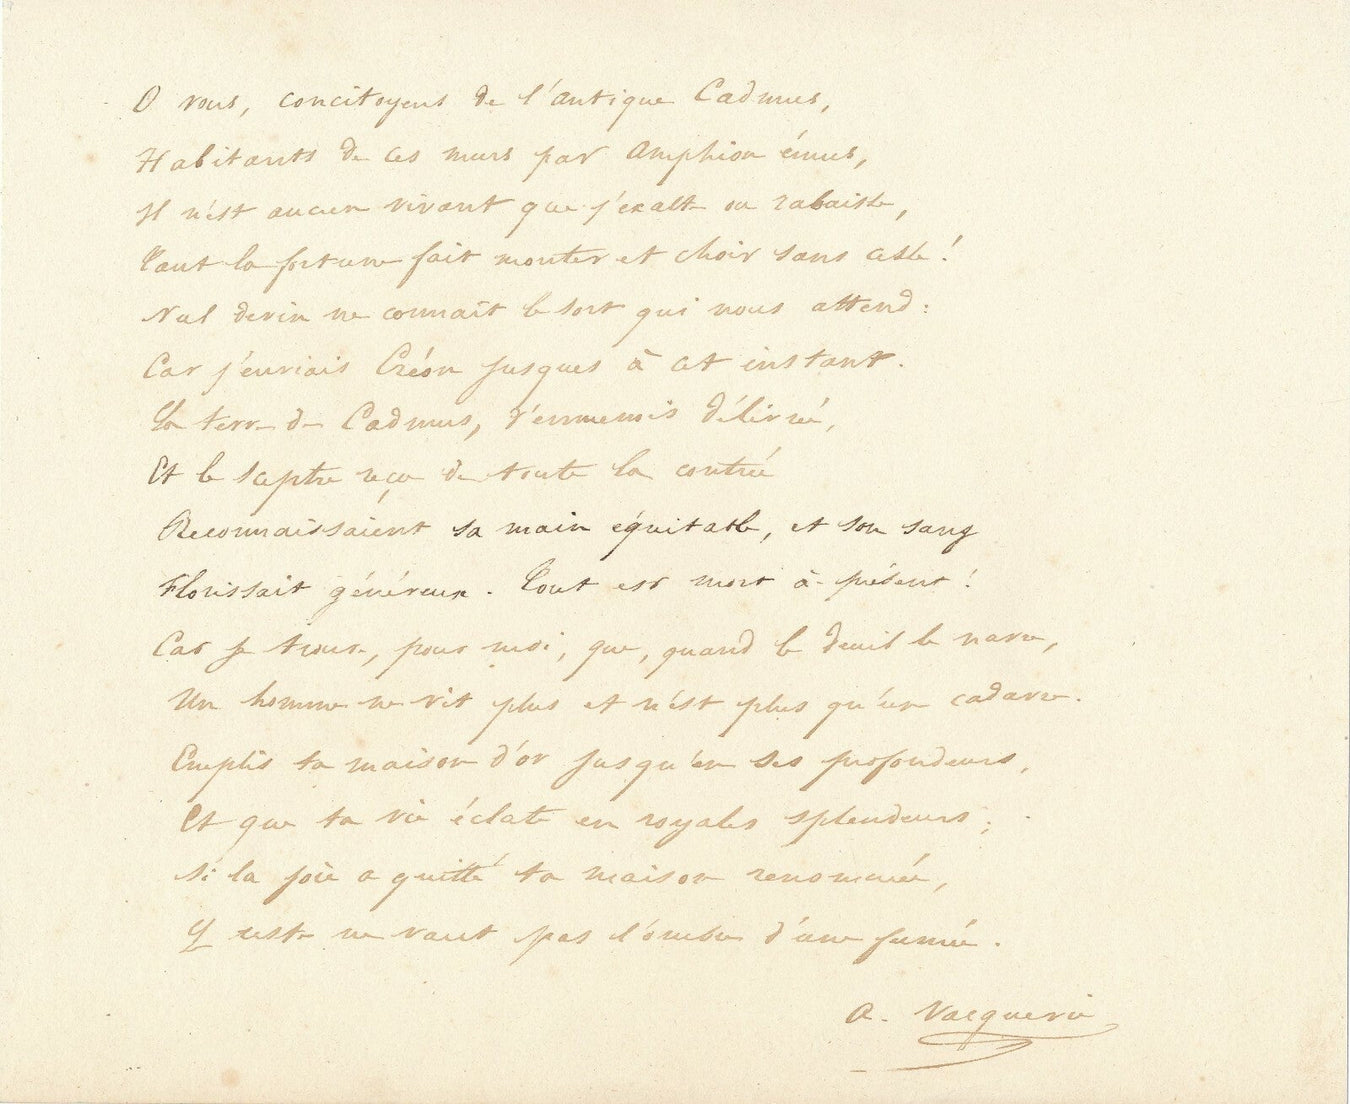 O vous, concitoyens de l'antique Cadmus,
Habitants de ces murs par Amphion émus,
Il n'est aucun vivant que j'exalte ou rabaisse,
Tant la fortune fait monter et choir sans cesse !
Nul devin ne connaît le sort qui nous attend :
Car j'enviais Créon jusques à cet instant.
La terre de Cadmus, d'ennemis délivrée,
Et le sceptre reçu de toute la contrée
Reconnaissaient sa main équitable, et son sang
Florissait généreux. Tout est mort à présent !
Car je trouve, pour moi, que, quand le deuil le navre,
Un homme ne vit plus et n'est plus qu'un cadavre.
Emplis ta maison d'or jusqu'en ses profondeurs,
Et que ta vie éclate en royales splendeurs ;
Si la joie a quitté ta maison renommée,
Le reste ne vaut pas l'ombre d'une fumée.
A. Vacquerie